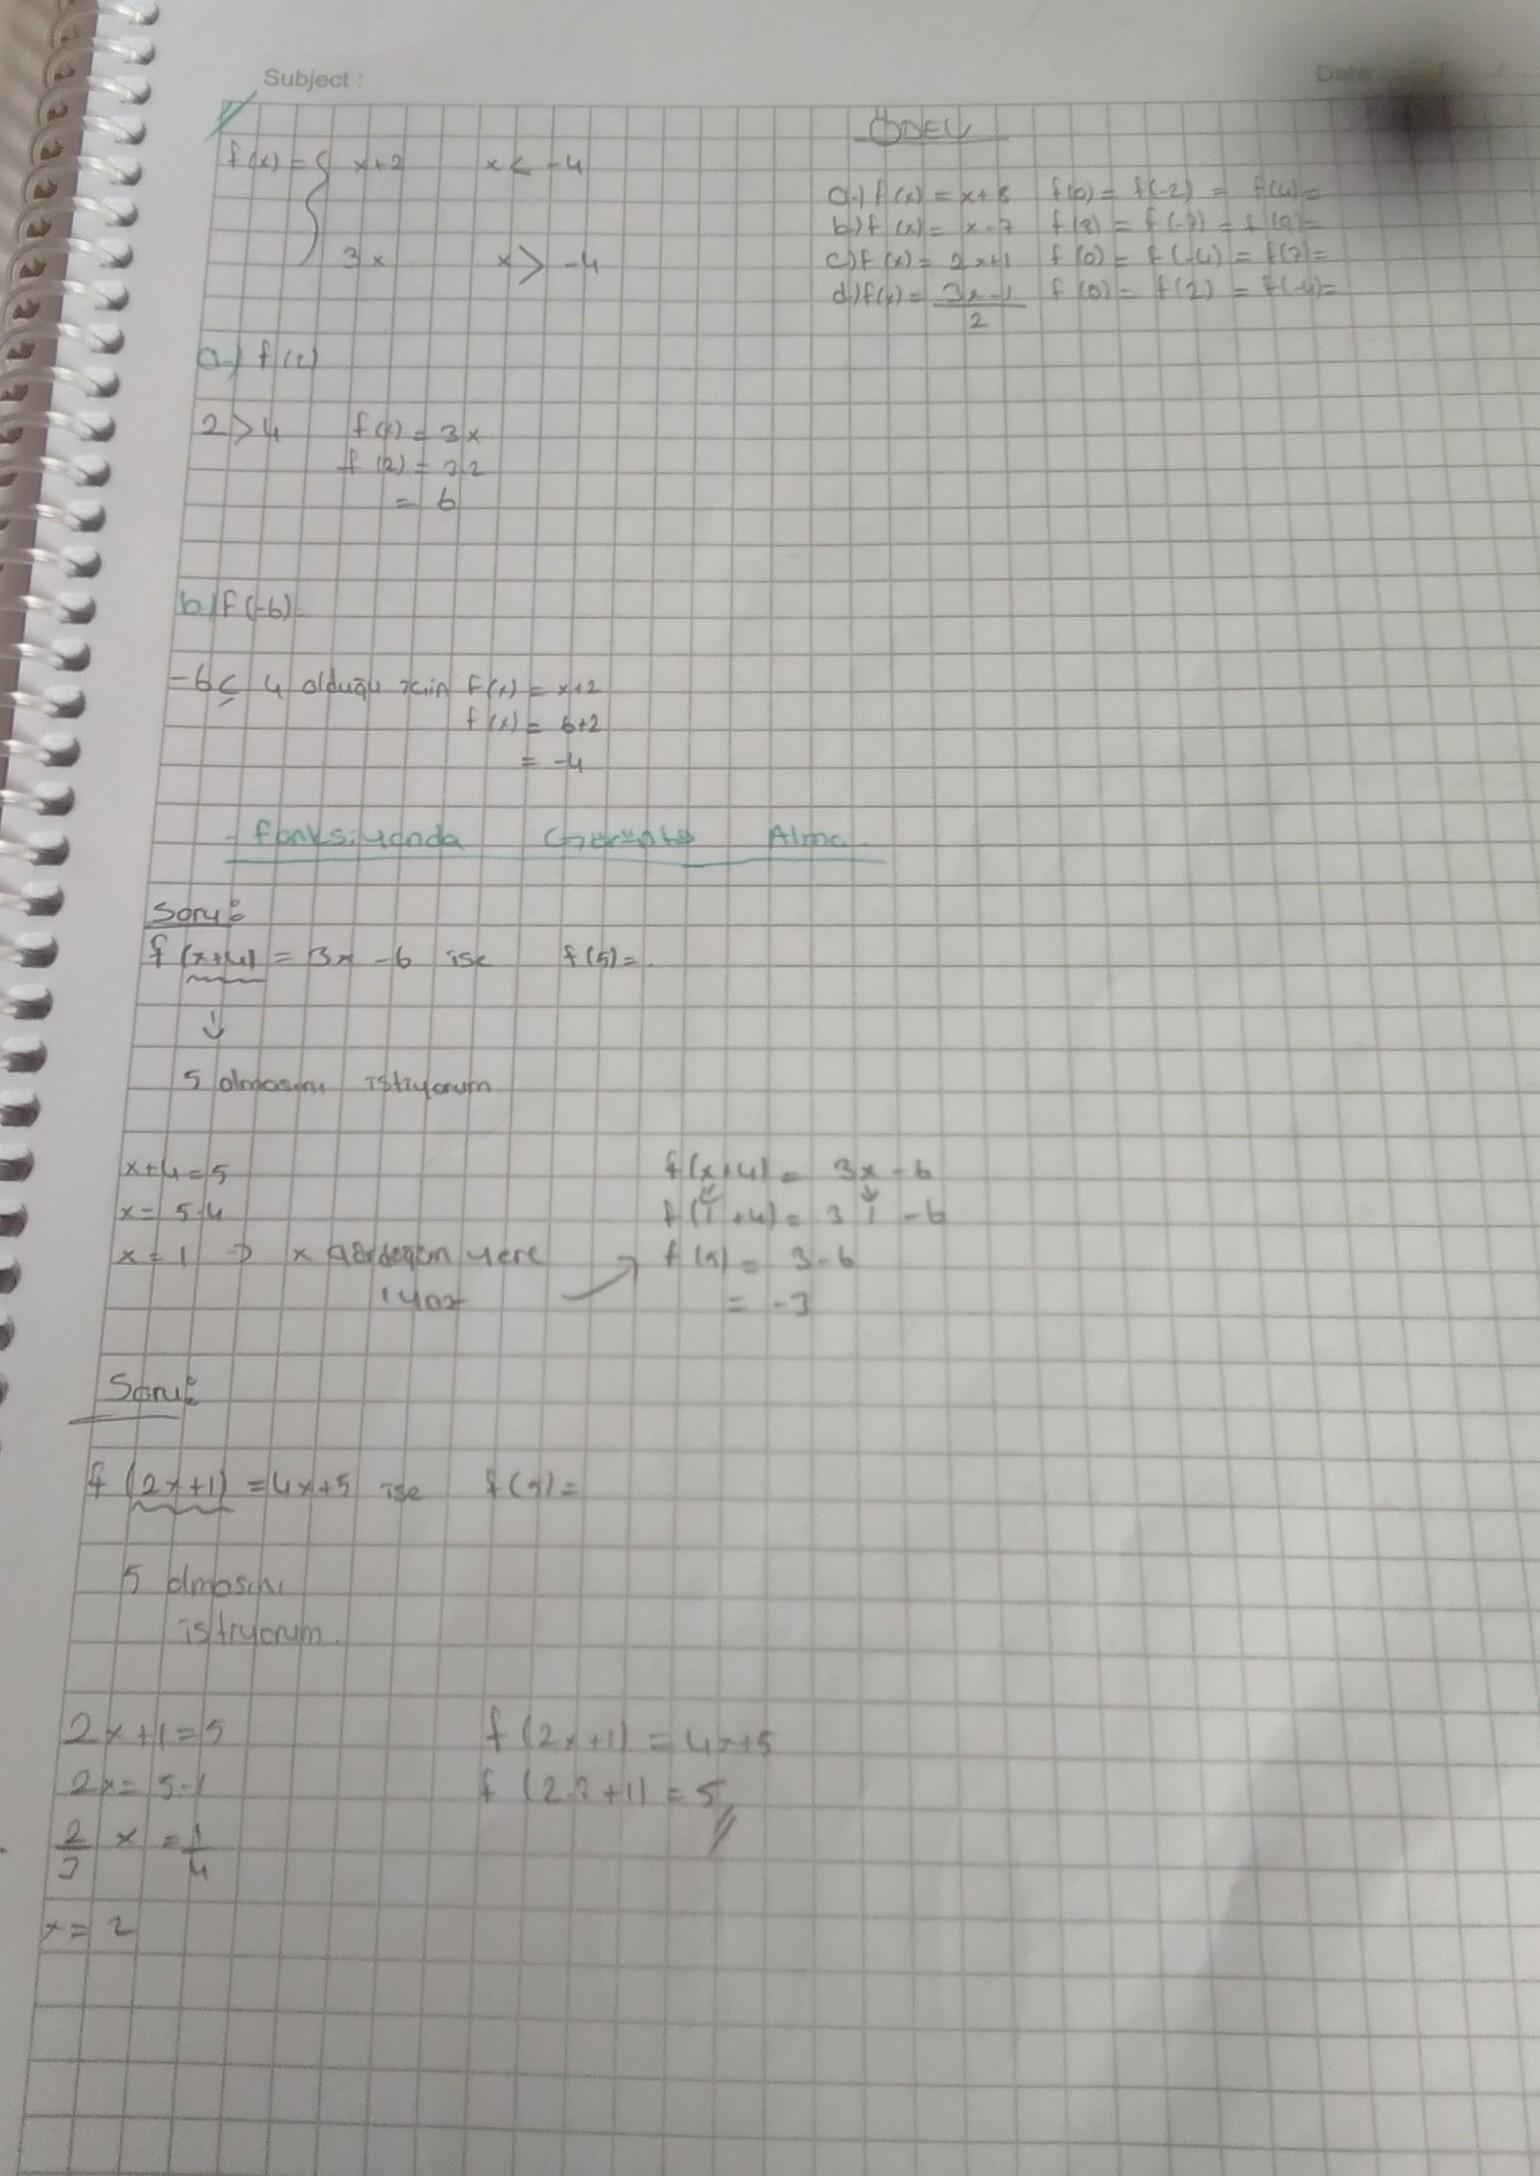 Subject :
Date
f(x) = { x+2    x < -4
3x    x > -4
ÖDEV
a-) f(x) = x+8   f(0) = f(-2) = f(4) =
b) f(x) = x-7   f(8) = f(-7) = f(9) =
c) f(x) = 2x+1   f(0) = f(-4) = f(7) =
d) f(x) = 3x-1/2   f(0) = f(2) = f(-4) =
a-) f(2)
2 > 4   f(x) = 3x
f(2) = 3.2
= 6
b) f(-6)
-6 ≤ 4 olduğu için f(x) = x+2
f(x) = 6+2
= -4
- Fonksiyonda Görüntü Alma
Soru:
f(x+4) = 3x-6 ise f(5) =
↓
5 olmasını istiyorum
x+4=5
x= 5-4
x=1 ⇒ x gördüğüm yere
1 yaz
f(x+4) = 3x-6
f(1+4) = 3 1 -6
f(5) = 3-6
= -3
Soru:
f(2x+1) = 4x+5 ise f(5) =
5 olmasını
istiyorum
2x+1=5
2x= 5-1
2/2 x = 4
x= 2
f(2x+1) = 4x+5
f(2.2+1) = 5